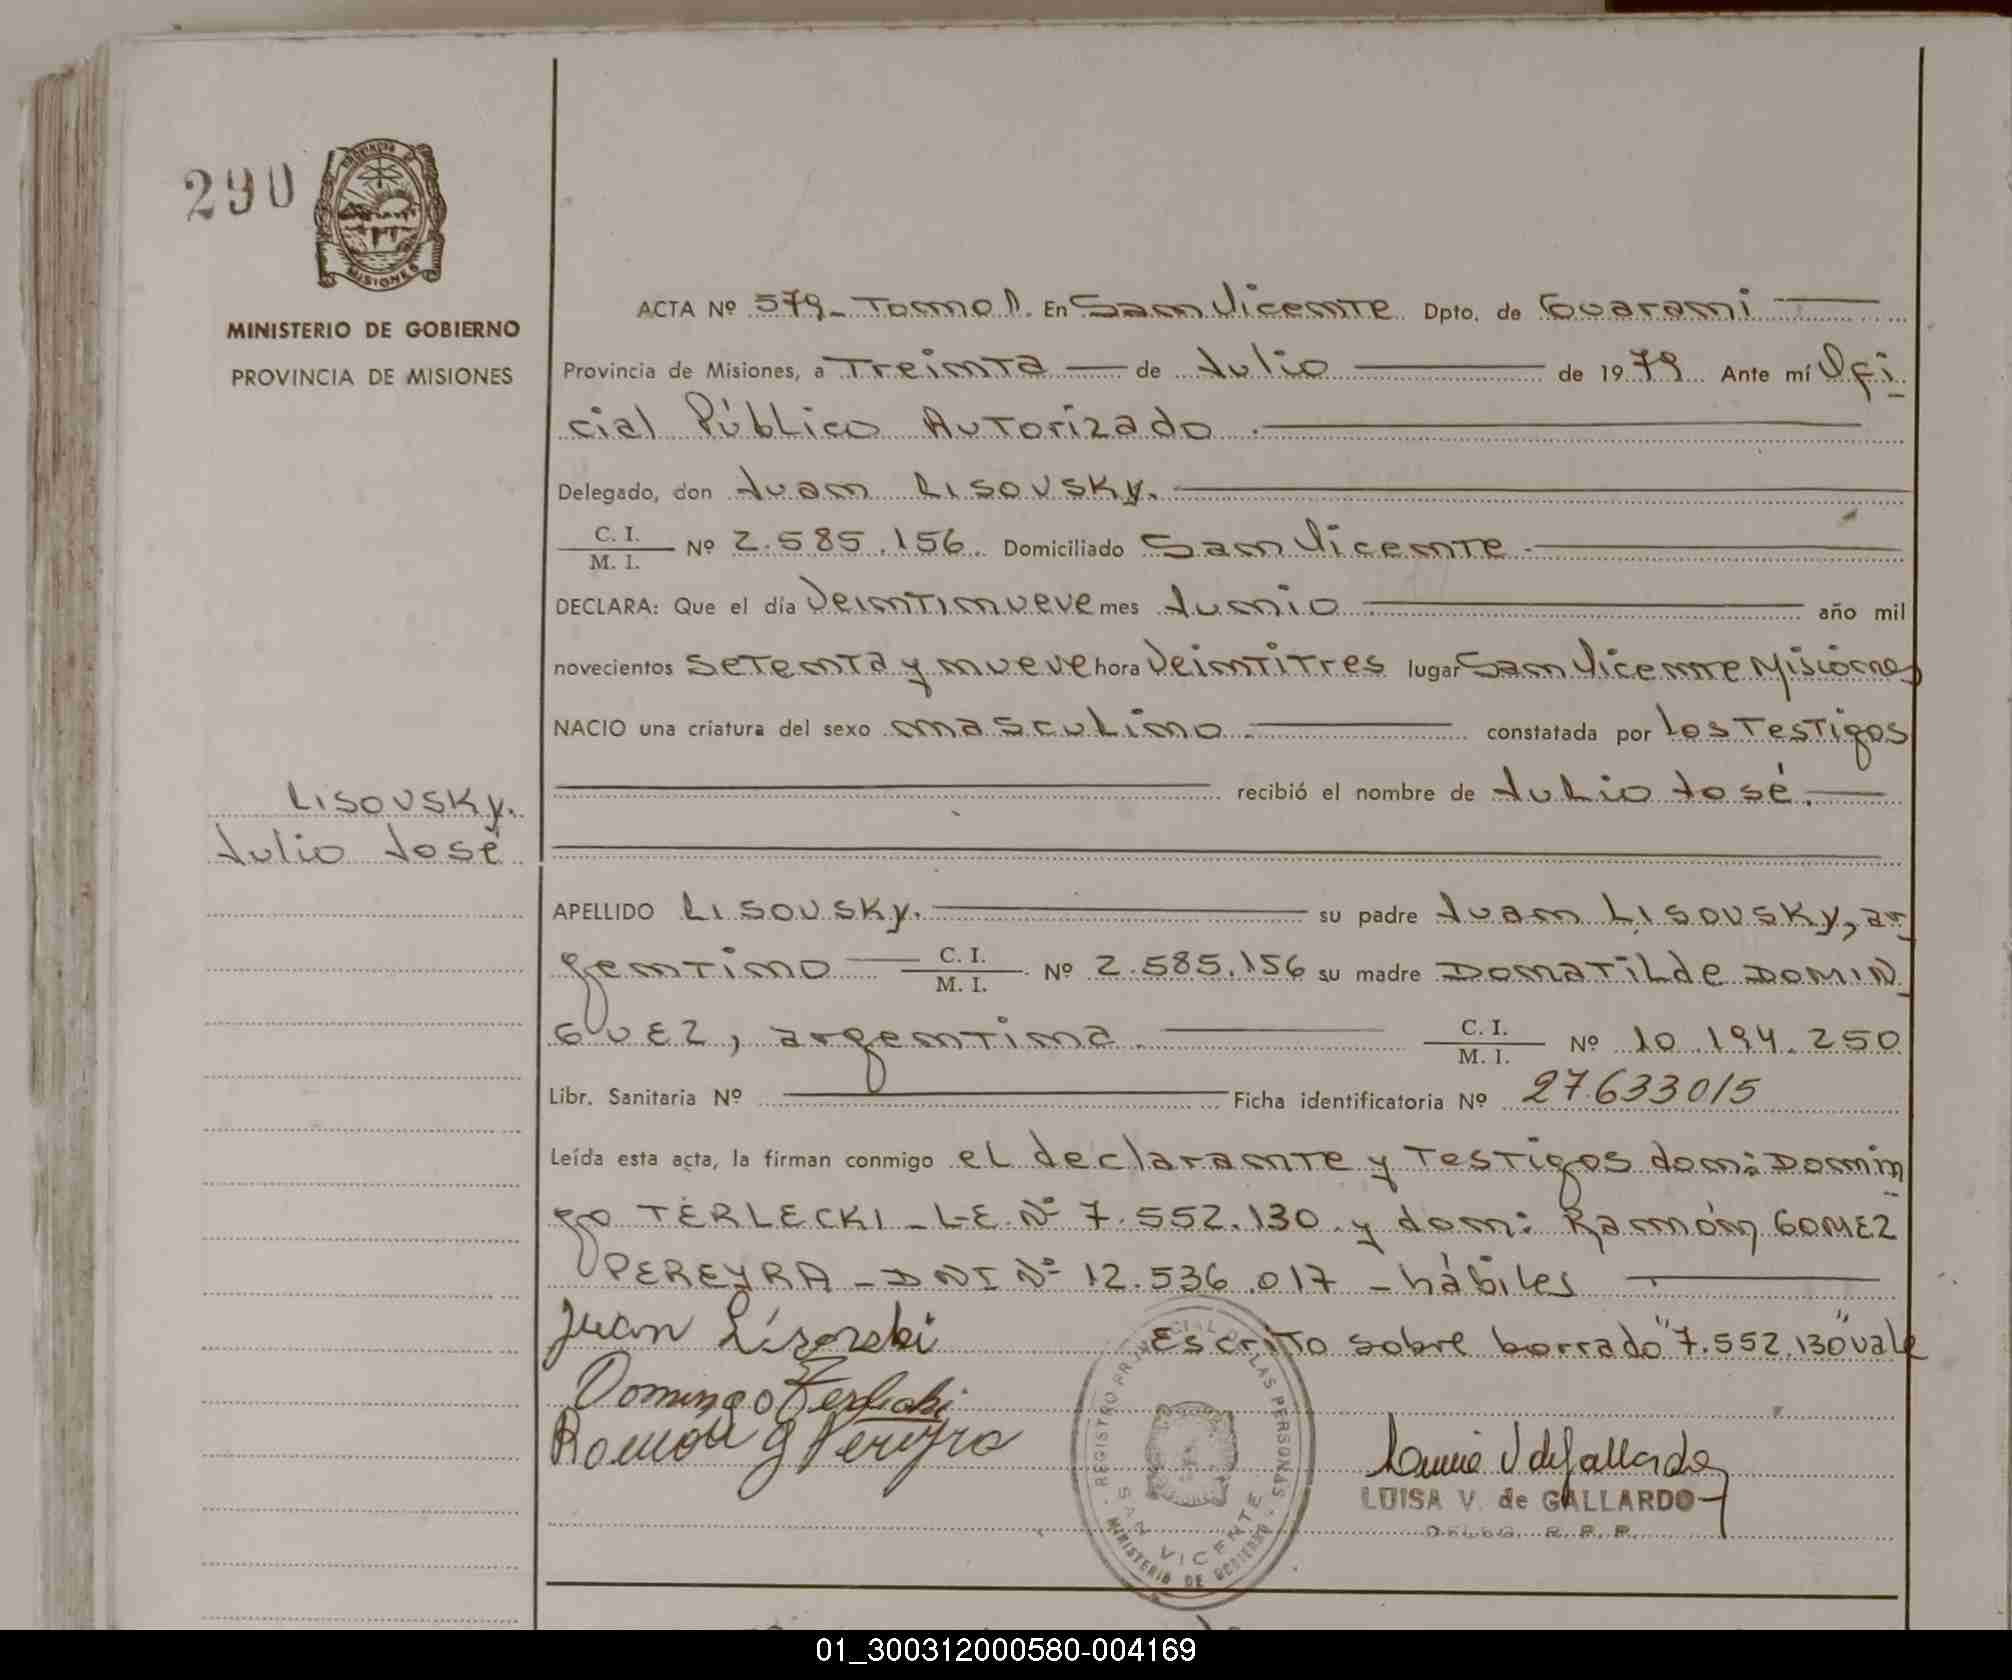 290
PROVINCIA DE
MISIONES
MINISTERIO DE GOBIERNO
PROVINCIA DE MISIONES
ACTA Nº 579_ Tomo I. En San Vicente Dpto. de Guarani
Provincia de Misiones, a Treinta de Julio de 1979 Ante mí Ofi
cial Público Autorizado
Delegado, don Juan Lisovsky.
C. I.
M. I. Nº 2.585.156. Domiciliado San Vicente
DECLARA: Que el día Veintinueve mes Junio año mil
novecientos Setenta y nueve hora Veintitres lugar San Vicente Misiones
NACIO una criatura del sexo masculino constatada por los Testigos
recibió el nombre de Julio José.
Lisovsky.
Julio José
APELLIDO Lisovsky. su padre Juan Lisovsky, ar
gentino C. I.
M. I. Nº 2.585.156 su madre DOMATILde DOMIN
GUEZ, argentina. C. I.
M. I. Nº 10.194.250
Libr. Sanitaria Nº Ficha identificatoria Nº 27.633015
Leída esta acta, la firman conmigo el declarante y Testigos don: Domin
go TERLECKI _ L-E. Nº 7.552.130 y don: Ramón GOMEZ
PEREYRA _ DNI Nº 12.536.017 - hábiles
Juan Lisovski Escrito sobre borrado "7.552.130" vale
Domingo Terlecki
Ramon G Pereyra
REGISTRO PROVINCIAL DE LAS PERSONAS
SAN VICENTE
MINISTERIO DE GOBIERNO
LUISA V. de GALLARDO
01_300312000580-004169